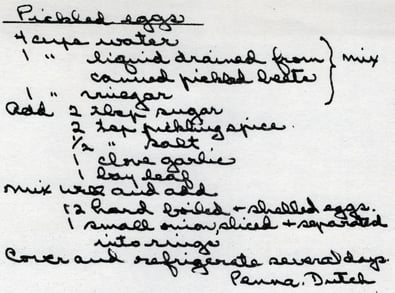 Pickled eggs
4 cups water
1 " liquid drained from
canned pickled beets
1 " vinegar
} mix
Add 2 tbsp sugar
2 tsp pickling spice
1/2 " salt
1 clove garlic
1 bay leaf
Mix well and add
12 hard boiled + shelled eggs.
1 small onion, sliced + separated
into rings
Cover and refrigerate several days.
Penna. Dutch